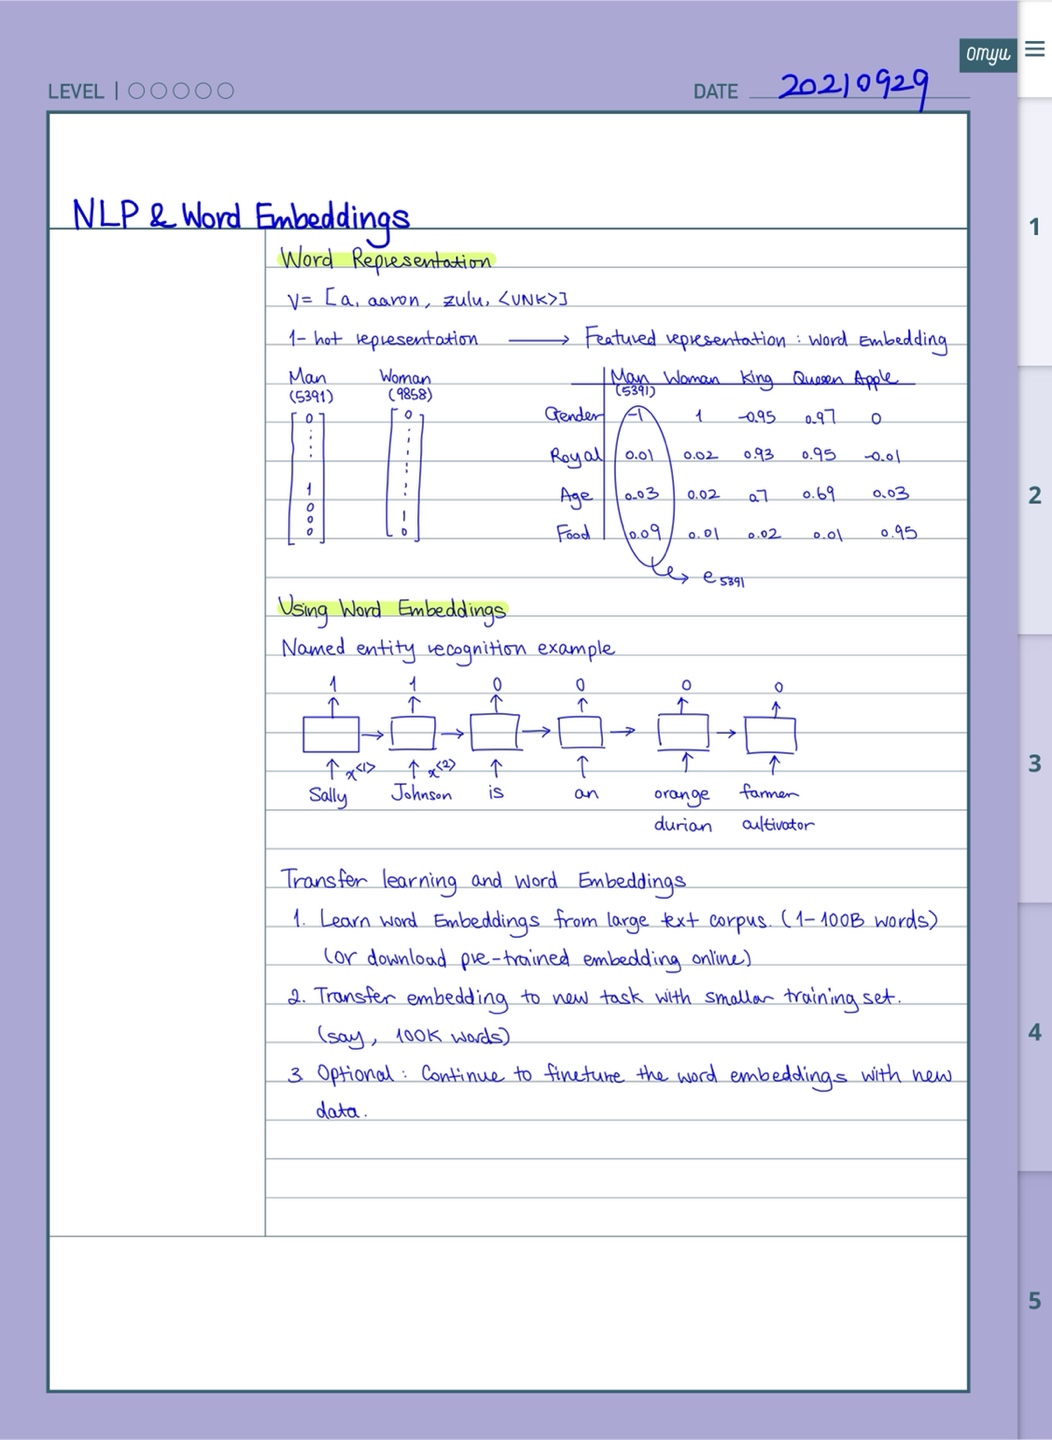 omyu
LEVEL | ○○○○○
DATE 20210929
NLP & Word Embeddings
Word Representation
V = [a, aaron, zulu, <UNK>]
1-hot representation ⟶ Featured representation : Word Embedding
Man Woman
(5391) (9858)
0 0
1
0
0 1
0 0
Man Woman King Queen Apple
(5391)
Gender -1 1 -0.95 0.97 0
Royal 0.01 0.02 0.93 0.95 -0.01
Age 0.03 0.02 0.7 0.69 0.03
Food 0.09 0.01 0.02 0.01 0.95
e5391
Using Word Embeddings
Named entity recognition example
1 1 0 0 0 0
x<1> x<2>
Sally Johnson is an orange farmer
durian cultivator
Transfer learning and word Embeddings
1. Learn word Embeddings from large text corpus. (1-100B words)
(or download pre-trained embedding online)
2. Transfer embedding to new task with smaller training set.
(say, 100K words)
3. Optional : Continue to finetune the word embeddings with new
data.
1
2
3
4
5